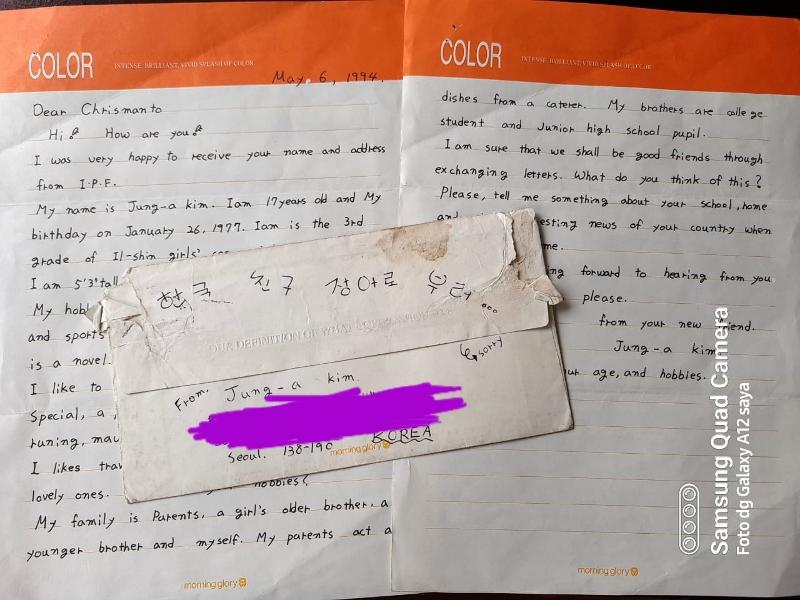 COLOR
INTENSE, BRILLIANT, VIVID SPLASH OF COLOR
May. 6, 1994.
Dear Chrismanto
Hi! How are you!
I was very happy to receive your name and address
from I.P.F.
My name is Jung-a kim. Iam 17years old and My
birthday on January 26, 1977. Iam is the 3rd
grade of Il-shin girls'
I am 5'3"tall
My hob
and sports
is a novel.
I like to
Special, a
runing, mac
I likes trav
lovely ones. hobbies?
My family is Parents, a girl's older brother, a
younger brother and myself. My parents act a
morning glory
COLOR
INTENSE, BRILLIANT, VIVID SPLASH OF COLOR
dishes from a caterer. My brothers are college
student and Junior high school pupil.
I am sure that we shall be good friends through
exchanging letters. What do you think of this?
Please, tell me something about your school, home
and esting news of your country when
me.
ing forward to hearing from you
please.
from your new iend.
Jung-a kim
ur age, and hobbies.
morning glory
한국 친구 정아로 부터...
OUR DEFINITION OF WHAT
sorry
From. Jung-a kim.
Seoul. 138-190 KOREA
morning glory
Samsung Quad Camera
Foto dg Galaxy A12 saya